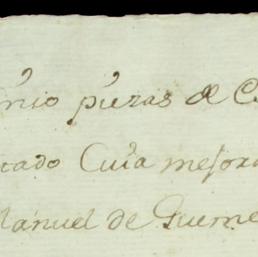 nio piezas de C
tado Cuia mejora
Manuel de Gueme